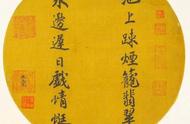 池上疎煙籠翡翠
水邊遲日戲蜻蜓